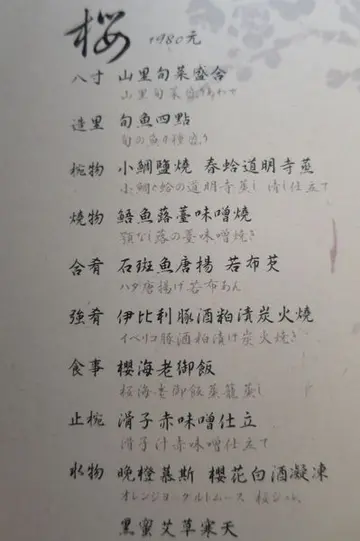 櫻 1980元
八寸 山里旬菜盛合
山里旬菜盛りあわせ
造里 旬魚四點
旬の魚四種盛り
椀物 小鯛鹽燒 春蛤道明寺蒸
小鯛と蛤の道明寺蒸し 清し仕立て
燒物 鯃魚蕗薹味噌燒
蕗の薹味噌焼き
合肴 石斑魚唐揚 若布芡
ハタ唐揚げ若布あん
強肴 伊比利豚酒粕漬炭火燒
イベリコ豚酒粕漬け炭火焼き
食事 櫻海老御飯
桜海老御飯蒸籠蒸し
止椀 滑子赤味噌仕立
滑子汁赤味噌仕立て
水物 晚橙慕斯 櫻花白酒凝凍
オレンジヨーグルトムース 桜ジュレ
黑蜜艾草寒天